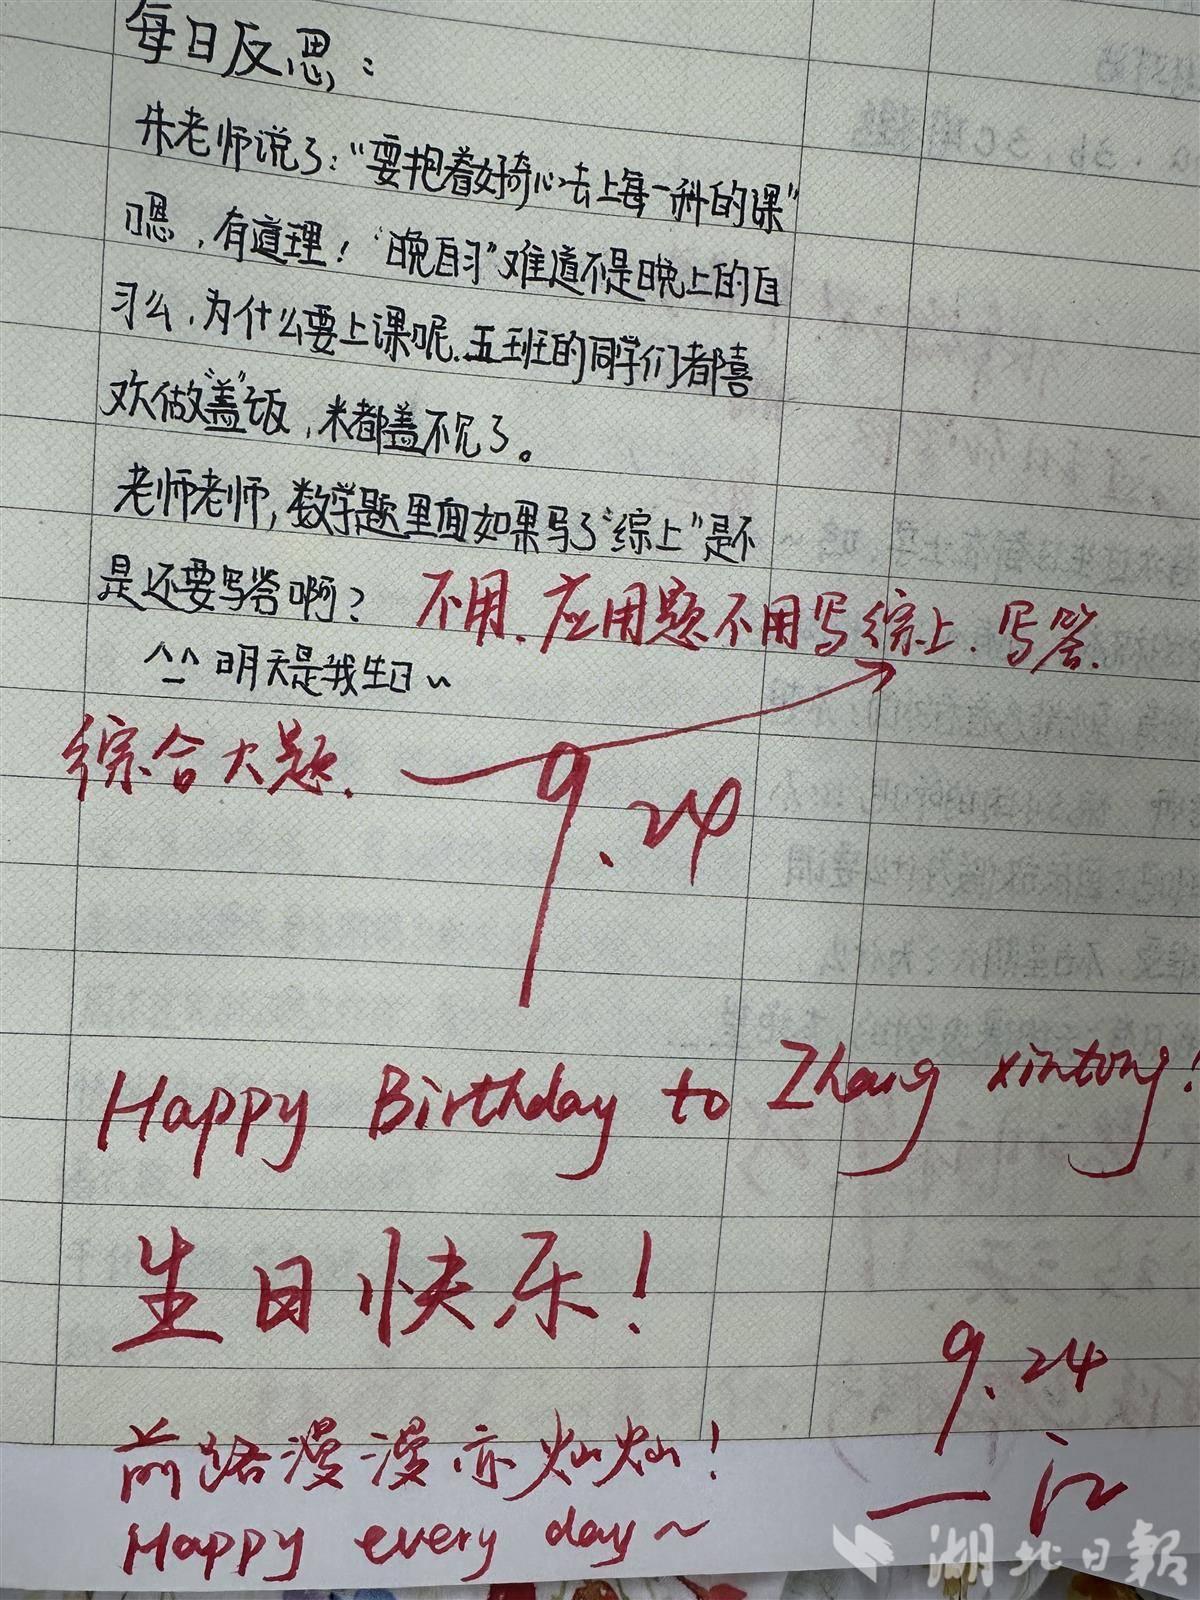 每日反思：
朱老师说了："要抱着好奇心去上每一科的课"
嗯，有道理！"晚自习"难道不是晚上的自
习么，为什么要上课呢．五班的同学们都喜
欢做"盖"饭，米都盖不见了。
老师老师，数学题里面如果写了"综上"是不
是还要写答啊？ 不用．应用题不用写综上．写答．
^_^ 明天是我生日~
综合大题．
9.24
Happy Birthday to Zhang xintong!
生日快乐！
9.24
前路漫漫亦灿灿！
一江
Happy every day~
湖北日報